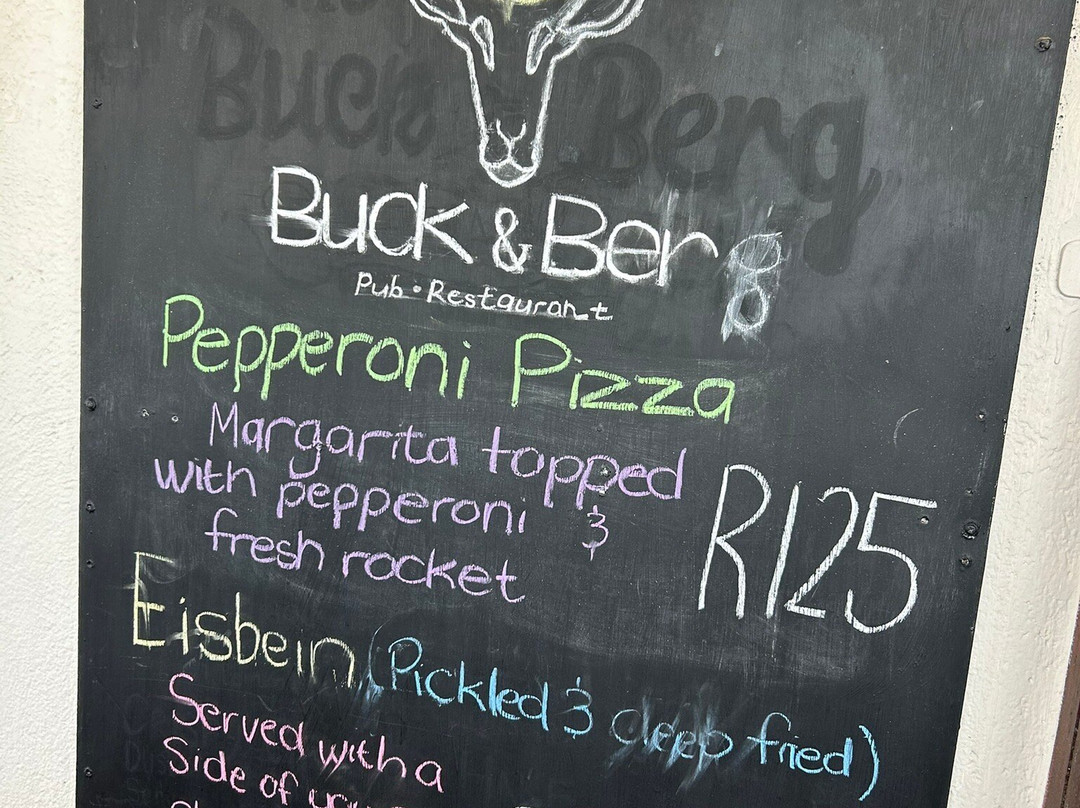 Buck & Berg
Pub • Restaurant
Pepperoni Pizza
Margarita topped
with pepperoni &
fresh rocket
R125
Eisbein (Pickled & deep fried)
Served with a
Side of